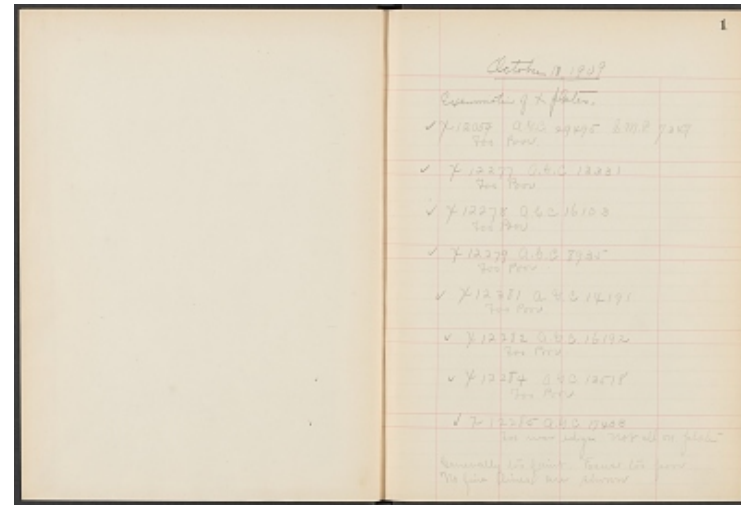 1
October 18, 1909
Examination of X plates.
✓ X 12057 A.G.C. 29295 B.M.P 7247
Too Poor
✓ X 12277 A.G.C. 12231
Too Poor
✓ X 12278 A.G.C. 16103
Too Poor
✓ X 12279 A.G.C. 8935
Too Poor
✓ X 12281 A.G.C. 14191
Too Poor
✓ X 12282 A.G.C. 16192
Too Poor
✓ X 12284 A.G.C. 12518
Too Poor
✓ X 12285 A.G.C.
Too near edge. Not all on plate
Generally too faint. too poor
No fine lines are shown